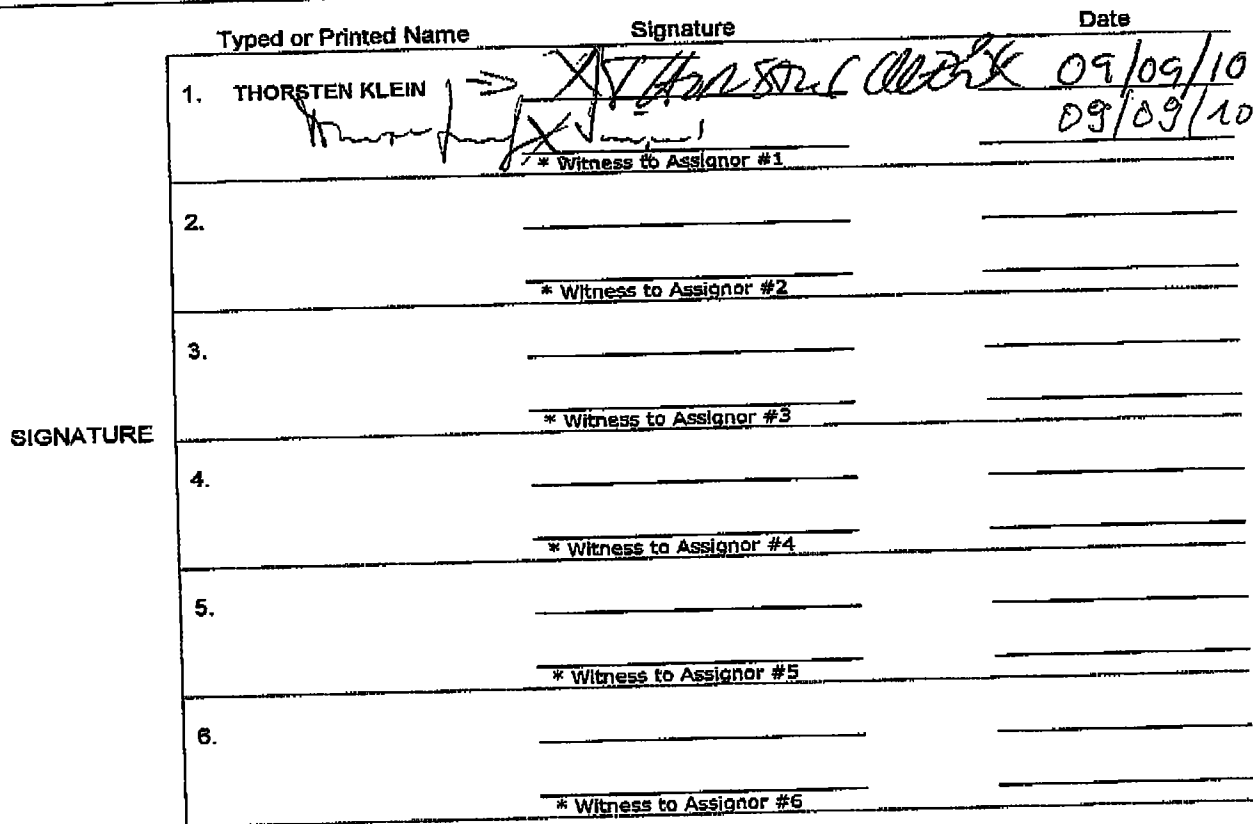 Typed or Printed Name Signature Date
1. THORSTEN KLEIN X 09/09/10
X 09/09/10
* Witness to Assignor #1
2.
* Witness to Assignor #2
3.
* Witness to Assignor #3
SIGNATURE
4.
* Witness to Assignor #4
5.
* Witness to Assignor #5
6.
* Witness to Assignor #6